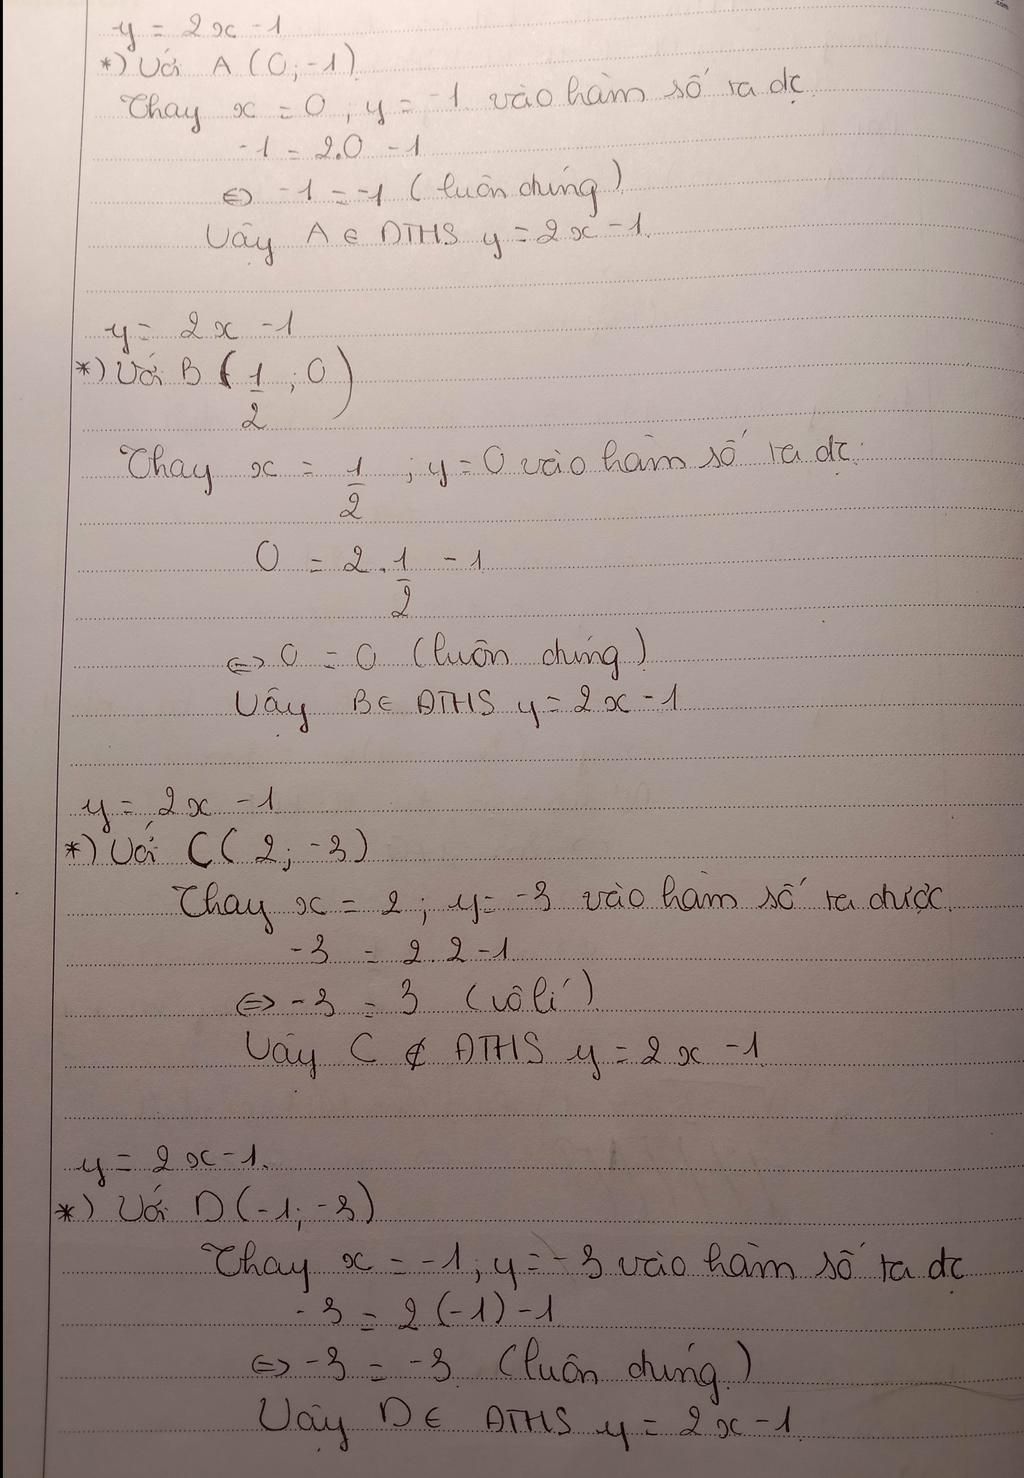 y = 2x - 1
*) Với A (0; -1)
Thay x = 0; y = -1 vào hàm số ta đc
-1 = 2.0 - 1
<=> -1 = -1 (luôn đúng)
Vậy A ∈ ĐTHS y = 2x - 1.
y = 2x - 1
*) Với B (1/2; 0)
Thay x = 1/2; y = 0 vào hàm số ta đc:
0 = 2.1/2 - 1
<=> 0 = 0 (luôn đúng)
Vậy B ∈ ĐTHS y = 2x - 1
y = 2x - 1
*) Với C (2; -3)
Thay x = 2; y = -3 vào hàm số ta được.
-3 = 2.2 - 1
<=> -3 = 3 (vô lí)
Vậy C ∉ ĐTHS y = 2x - 1
y = 2x - 1.
*) Với D (-1; -3)
Thay x = -1; y = -3 vào hàm số ta đc
-3 = 2(-1) - 1
<=> -3 = -3 (luôn đúng)
Vậy D ∈ ĐTHS y = 2x - 1